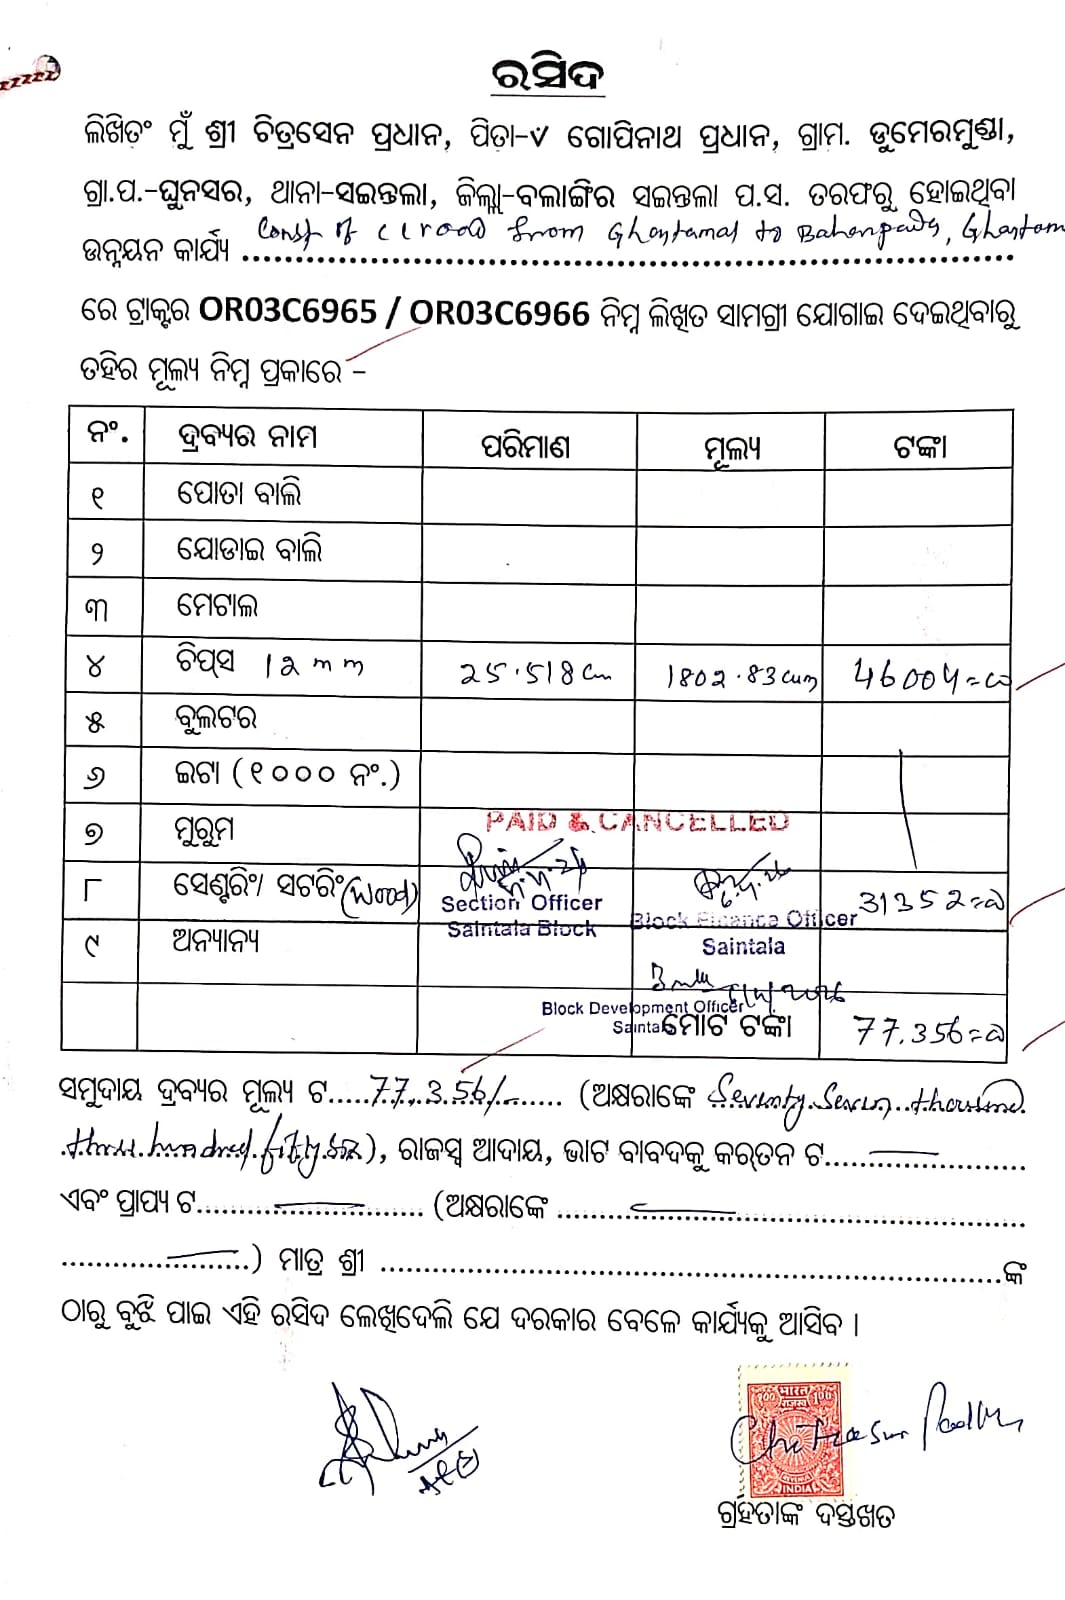 ରସିଦ
ଲିଖିତଂ ମୁଁ ଶ୍ରୀ ଚିତ୍ରସେନ ପ୍ରଧାନ, ପିତା-୰ ଗୋପିନାଥ ପ୍ରଧାନ, ଗ୍ରାମ. ଡୁମେରମୁଣ୍ଡା,
ଗ୍ରା.ପ.-ଘୁନସର, ଥାନା-ସଇନ୍ତଲା, ଜିଲ୍ଲା-ବଲାଙ୍ଗିର ସଇନ୍ତଲା ପ.ସ. ତରଫରୁ ହୋଇଥିବା
ଉନ୍ନୟନ କାର୍ଯ୍ୟ Const of CC road from Ghantamal to Bahenpada,
ରେ ଟ୍ରାକ୍ଟର OR03C6965 / OR03C6966 ନିମ୍ନ ଲିଖିତ ସାମଗ୍ରୀ ଯୋଗାଇ ଦେଇଥିବାରୁ
ତହିର ମୂଲ୍ୟ ନିମ୍ନ ପ୍ରକାରେ –
ନଂ. ଦ୍ରବ୍ୟର ନାମ ପରିମାଣ ମୂଲ୍ୟ ଟଙ୍କା
୧ ପୋତା ବାଲି
୨ ଯୋଡାଇ ବାଲି
୩ ମେଟାଲ
୪ ଚିପ୍ସ 12mm 25.518 Cum 1802.83 cum 46004=00
୫ ବୁଲଟର
୬ ଇଟା (୧୦୦୦ ନଂ.)
୭ ମୁରୁମ
PAID & CANCELLED
୮ ସେଣ୍ଟରିଂ/ ସଟରିଂ (Wood) 31352=00
Section Officer
Saintala Block
Block Finance Officer
Saintala
୯ ଅନ୍ୟାନ୍ୟ
Block Development Officer
Saintala
ମୋଟ ଟଙ୍କା 77.356=00
ସମୁଦାୟ ଦ୍ରବ୍ୟର ମୂଲ୍ୟ ଟ.....77.356/-....... (ଅକ୍ଷରାଙ୍କେ Seventy Seven thousand
three hundred fifty six), ରାଜସ୍ୱ ଆଦାୟ, ଭାଟ ବାବଦକୁ କର୍ତନ ଟ....................
ଏବଂ ପ୍ରାପ୍ୟ ଟ.......................... (ଅକ୍ଷରାଙ୍କେ ..................................................
........................) ମାତ୍ର ଶ୍ରୀ ..................................................................ଙ୍କ
ଠାରୁ ବୁଝି ପାଇ ଏହି ରସିଦ ଲେଖିଦେଲି ଯେ ଦରକାର ବେଳେ କାର୍ଯ୍ୟକୁ ଆସିବ ।
भारत
INDIA
ଗ୍ରହିତାଙ୍କ ଦସ୍ତଖତ